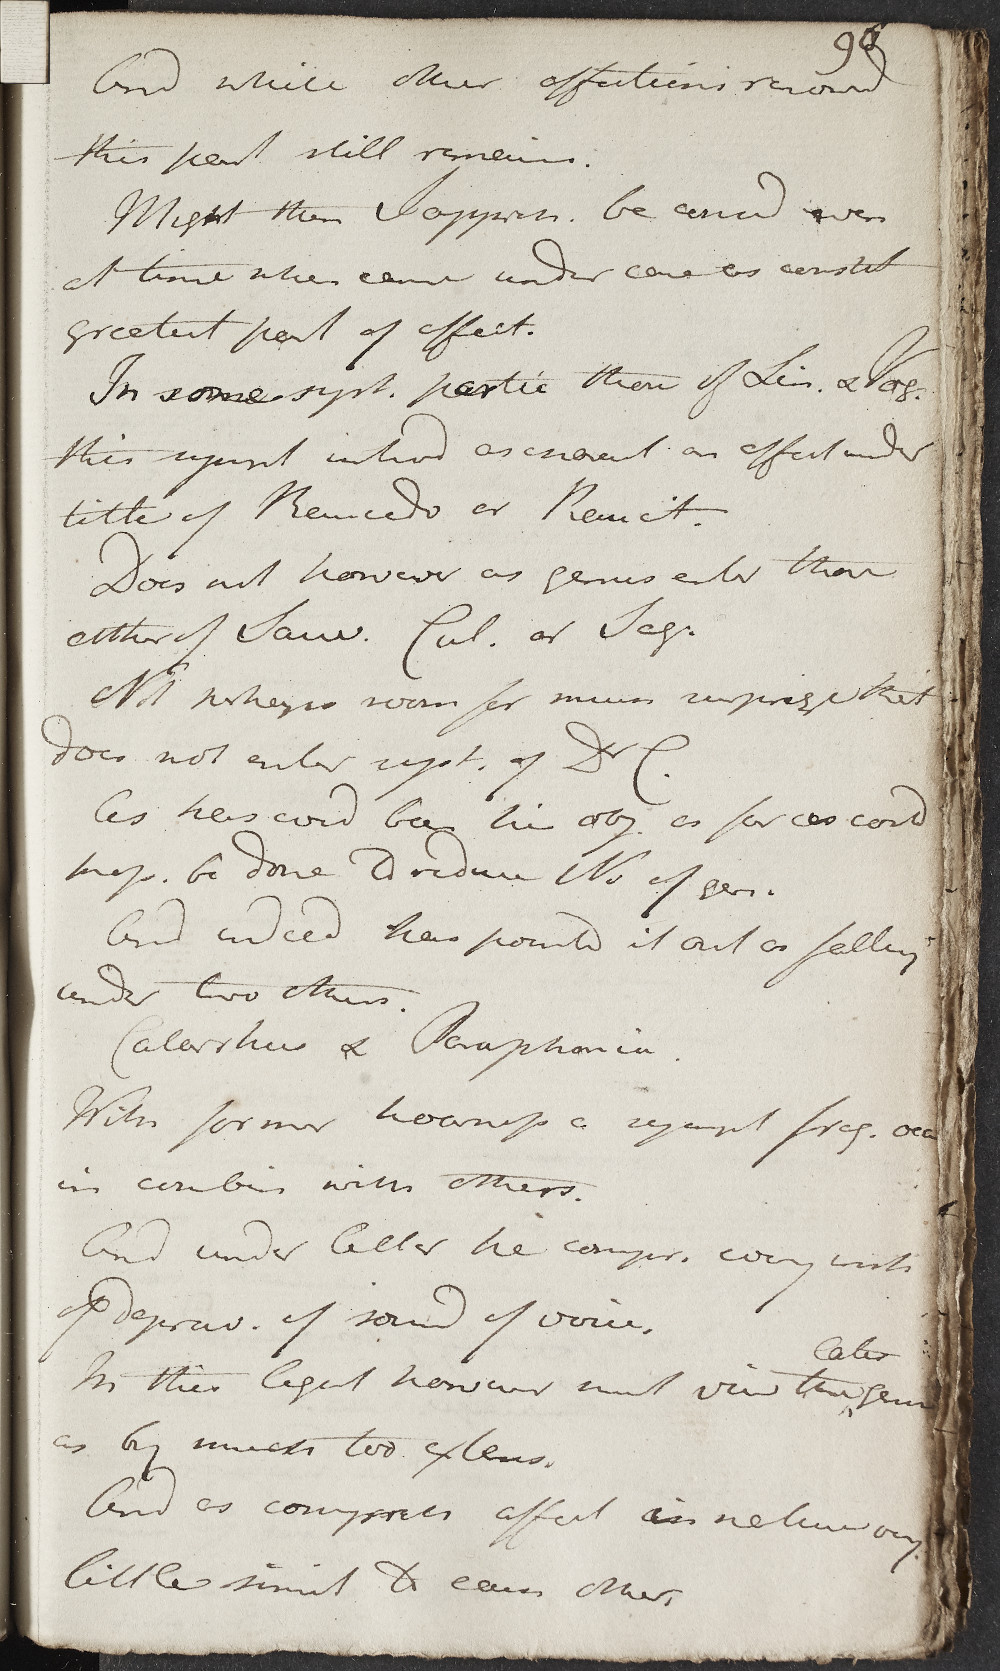 96
And while other affections remov'd
this part still remains.
Might then I apprh. be consid even
at time when came under care as constit
greatest part of affect.
In some syst. partic those of Lin. & Vog.
this sympt introd as a affect under
title of Raucedo or Raucit.
Does not however as genus enter those
either of Sauv. Cul. or Sag.
Not perhaps room for much surprize that
does not enter syst. of Dr C.
As has avowd been his obj. as far as could
poss. be done to reduce No of gen.
And indeed has pointd it out as falling
under two others.
Catarrhus & Paraphonia.
With former hoarsness a sympt freq. occ
in combin with others.
And under latter he compr. every
deprav. of sound of voice.
In this light however must view this later genus
as by much too extens.
And as compreh affect in nature very
little simil to each other.